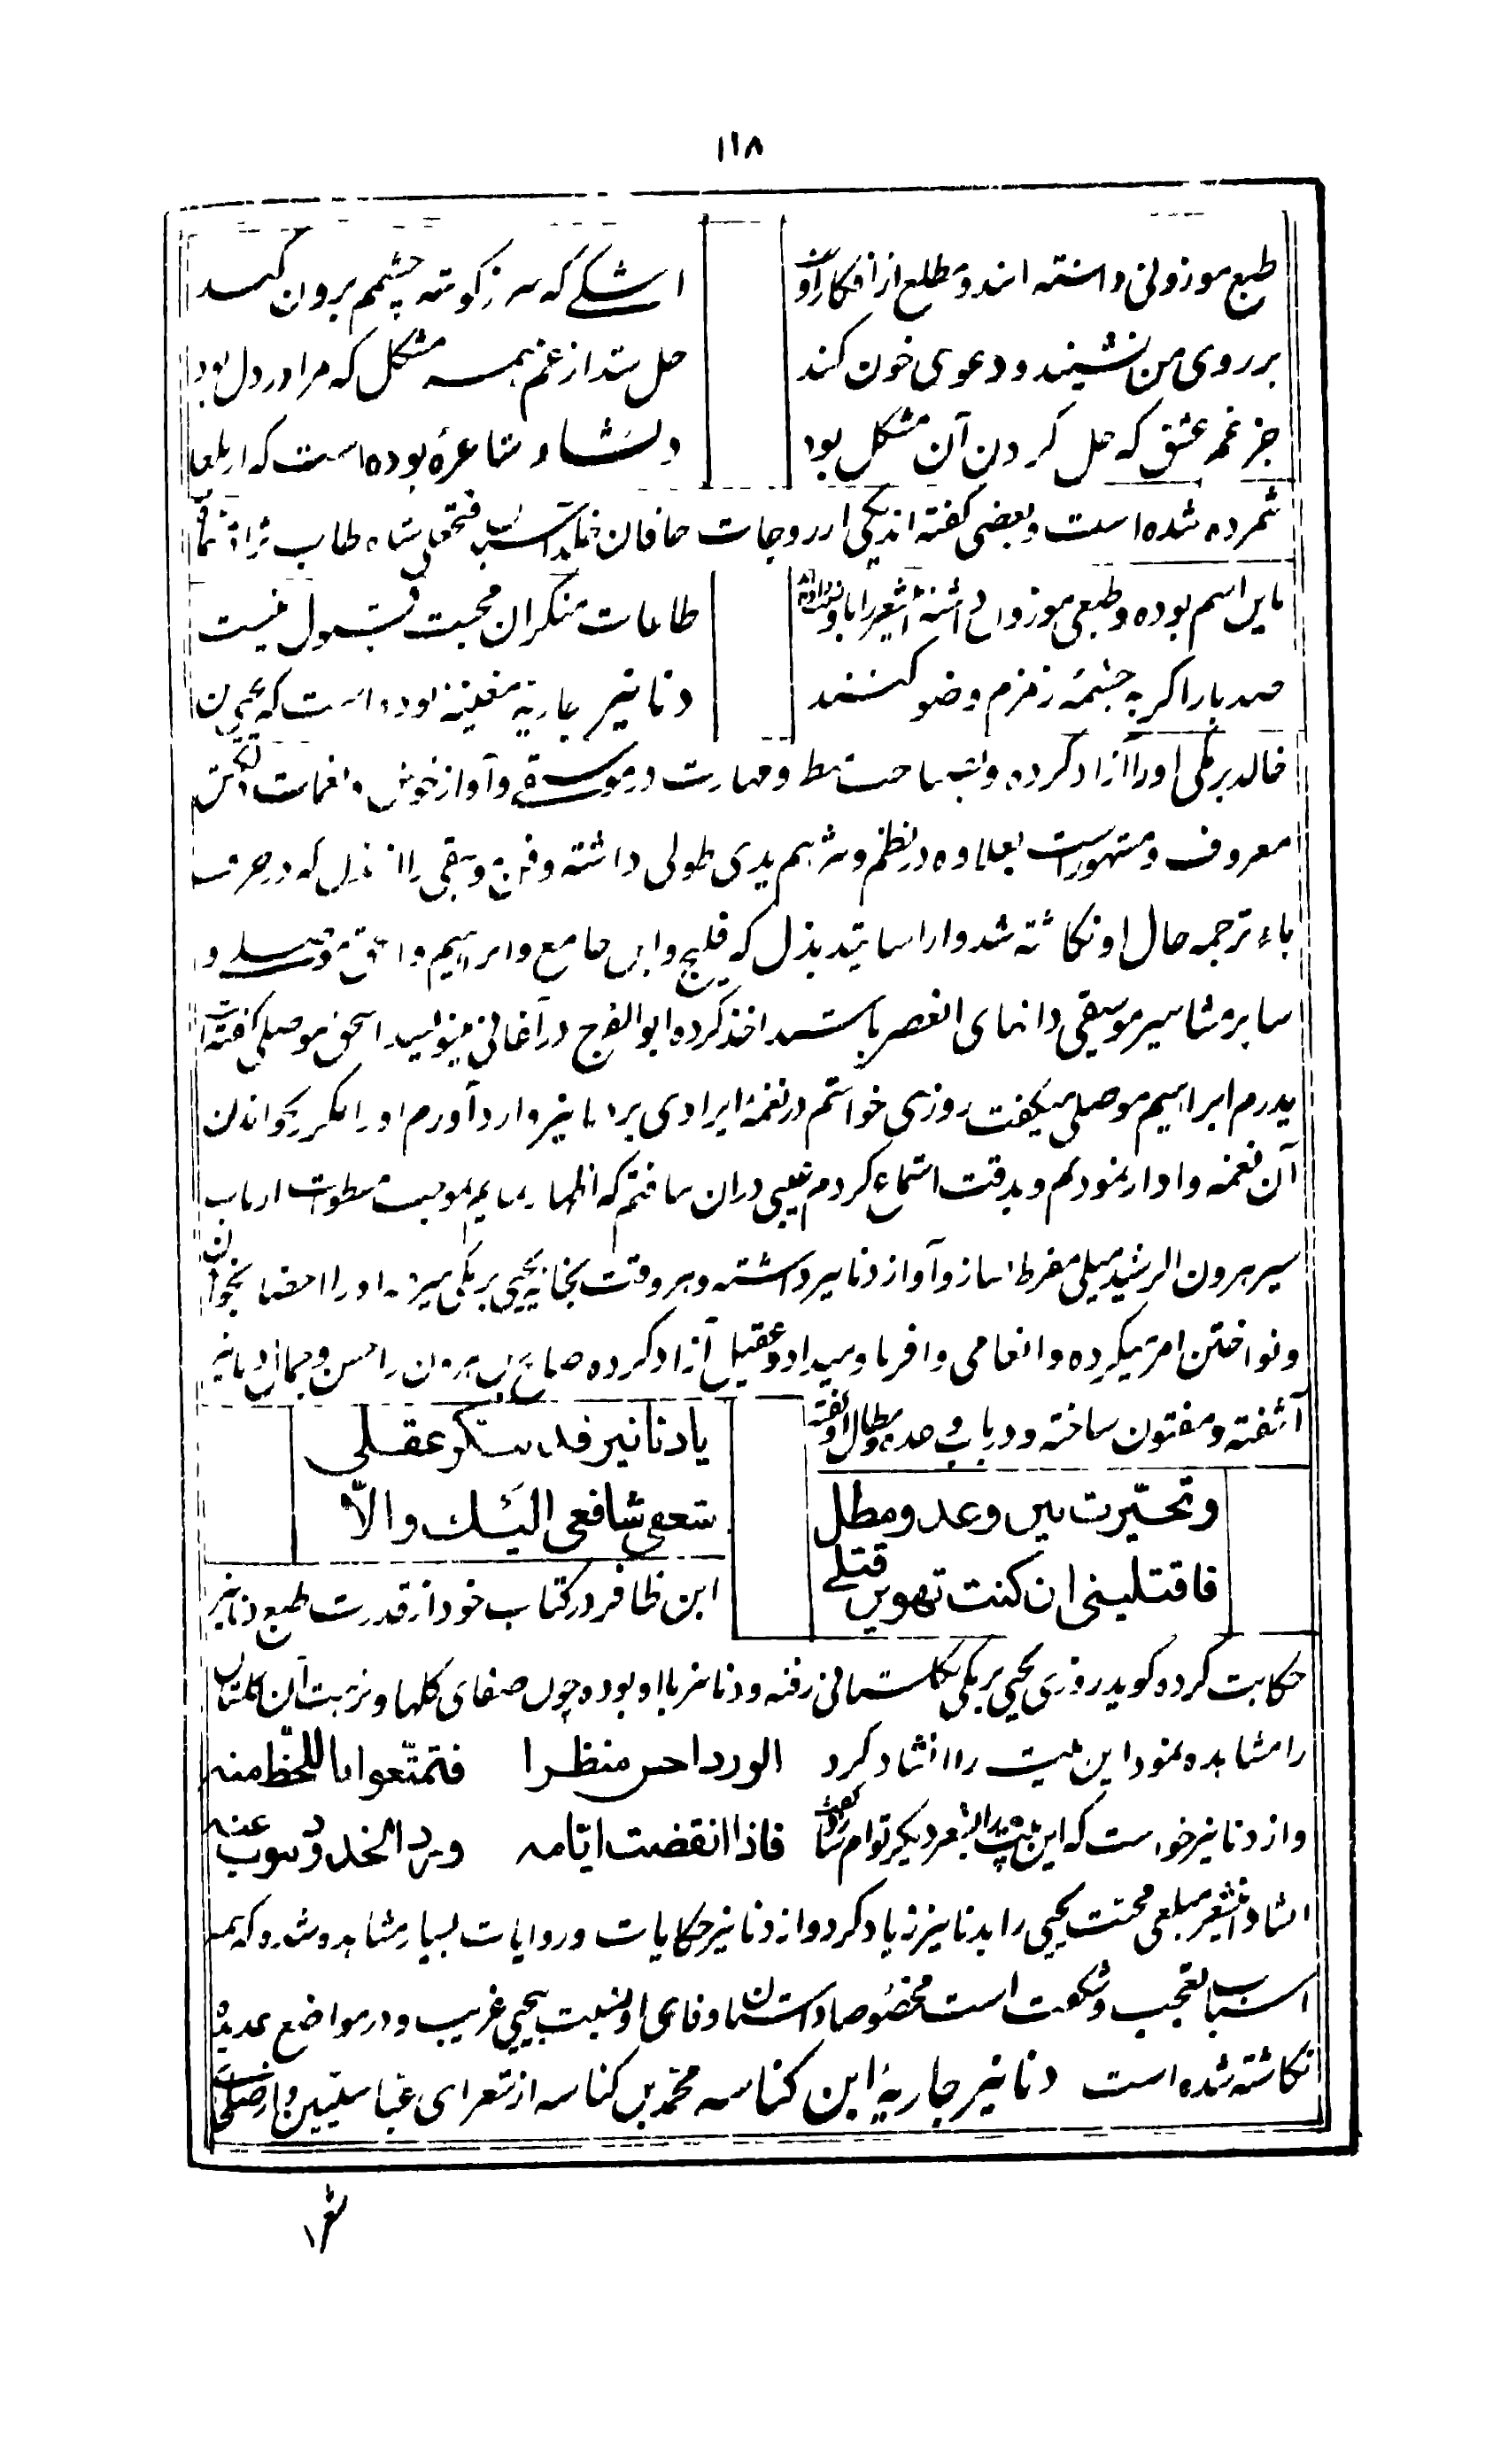 ۱۱۸
طبع موزونی داشته اند و مطلع از افکار اوست اشکی که سر ز گوشه چشمم برون کند
بر روی من نشیند و دعوی خون کند حل شد از غم همه مشکل که مرا در دل بود
جز غم عشق که حل کردن آن مشکل بود دلشاد شاعره بوده است که از بلغا
شمرده شده است و بعضی گفته اند یکی از زوجات خاقان فتحعلی شاه طاب ثراه
باین اسم بوده و طبعی موزون داشته این شعر را باو نسبت داده اند طاعات منکران محبت قبول نیست
صد بار اگر به چشمه زمزم وضو کنند دنانیر جاریه مغنیه بوده است که یحیی بن
خالد برمکی او را آزاد کرده و بصباحت منظر و مهارت در موسیقی و آواز خوش و نغمات دلکش
معروف و مشهور است بعلاوه در نظم و نثر هم یدی طولی داشته و فن موسیقی را از بذل که در حرف
باء ترجمه حال او نگاشته شد و از اساتید بذل که فلیح و ابن جامع و ابراهیم و اسحق موصلی و
سایر مشاهیر موسیقی دانهای العصر باشند اخذ کرده ابوالفرج در آغانی مینویسد اسحق موصلی گفته است
پدرم ابراهیم موصلی میگفت روزی خواستم در نغمه ایرادی بر دنانیر وارد آورم او را مکرر بخواندن
آن نغمه وادار نمودم و بدقت استماع کردم عیبی در آن نیافتم که اظهار نمایم بموجب مسطورات ارباب
سیر هرون الرشید میلی مفرط بساز و آواز دنانیر داشته و هر وقت بخانه یحیی برمکی میرفته او را احضار بخواندن
و نواختن امر میکرده و انعامی وافر باو میداد و عقیل آزاد کرده صالح بن هرون را حسن و جمال دنانیر
آشفته و مفتون ساخته و در باب وعده و مطال او گفته یا دنانیر قد تنکر عقلی
و تحیّرت بین وعد و مطل شفعی شافعی الیك والّا
فاقتلینی ان کنت تهوین قتلے ابن ظافر در کتاب خود از قدرت طبع دنانیر
حکایت کرده گوید روزی یحیی برمکی بگلستانی رفته و دنانیر با او بوده چون صفای گلها و نزهت آن گلستان
را مشاهده نمود این بیت را انشاد کرد الورد احسن منظرا فتمتّعوا باللّحظ منه
و از دنانیر خواست که این بیت را بشعر دیگر توأم نماید فاذا انقضت ایّامه ورد الخدود ینوب عنه
انشاد این شعر مبلغی محبت یحیی را بدنانیر زیاد کرد و از دنانیر حکایات و روایات بسیار مشاهده شده که همه
اسباب تعجب و شگفت است مخصوصا داستان وفای او نسبت به یحیی غریب و در مواضع عدیده
نگاشته شده است دنانیر جاریهٔ ابن کناسه محمّد بن کناسه از شعرای عباسیّین و